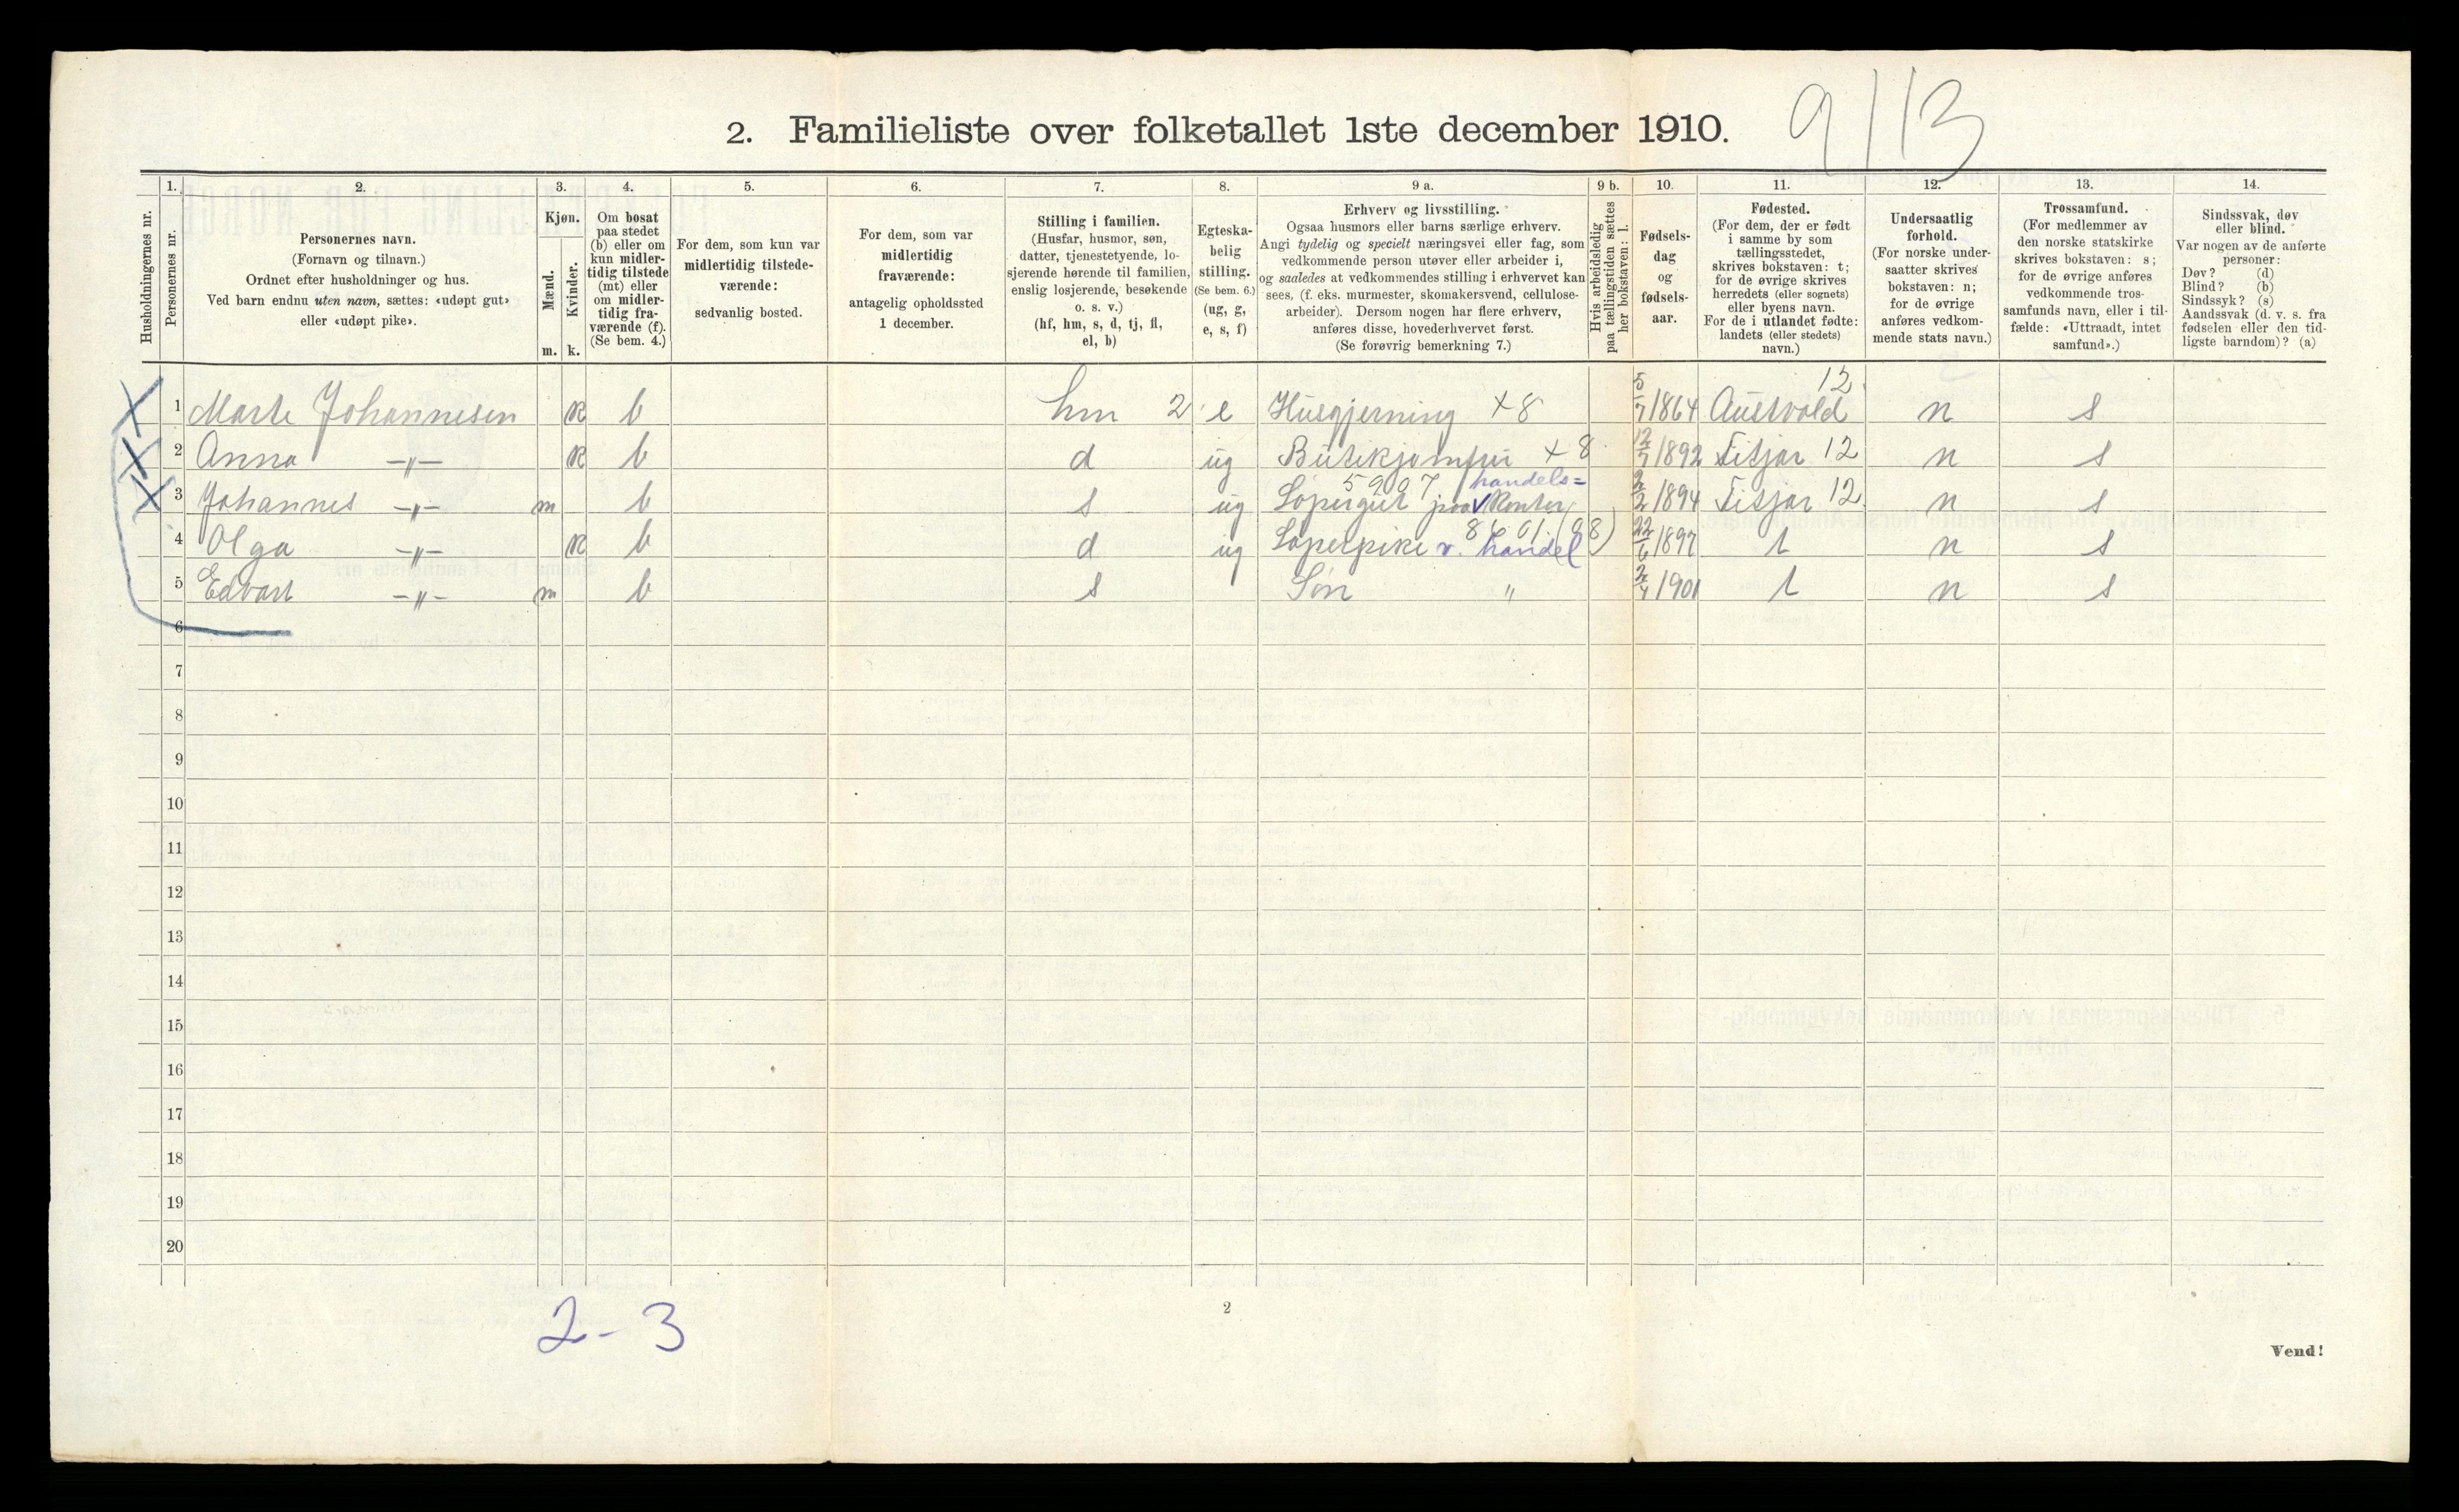 2. Familieliste over folketallet 1ste december 1910.
9/13
Husholdningernes nr.
1.
Personernes nr.
2.
Personernes navn.
(Fornavn og tilnavn.)
Ordnet efter husholdninger og hus.
Ved barn endnu uten navn, sættes: «udøpt gut»
eller «udøpt pike».
3.
Kjøn.
Mænd.
Kvinder.
m. k.
4.
Om bosat
paa stedet
(b) eller om
kun midler-
tidig tilstede
(mt) eller
om midler-
tidig fra-
værende (f).
(Se bem. 4.)
5.
For dem, som kun var
midlertidig tilstede-
værende:
sedvanlig bosted.
6.
For dem, som var
midlertidig
fraværende:
antagelig opholdssted
1 december.
7.
Stilling i familien.
(Husfar, husmor, søn,
datter, tjenestetyende, lo-
sjerende hørende til familien,
enslig losjerende, besøkende
o. s. v.)
(hf, hm, s, d, tj, fl,
el, b)
8.
Egteska-
belig
stilling.
(Se bem. 6.)
(ug, g,
e, s, f)
9 a.
Erhverv og livsstilling.
Ogsaa husmors eller barns særlige erhverv.
Angi tydelig og specielt næringsvei eller fag, som
vedkommende person utøver eller arbeider i,
og saaledes at vedkommendes stilling i erhvervet kan
sees, (f. eks. murmester, skomakersvend, cellulose-
arbeider). Dersom nogen har flere erhverv,
anføres disse, hovederhvervet først.
(Se forøvrig bemerkning 7.)
9 b.
Hvis arbeidsledig
paa tællingstiden sættes
her bokstaven: l.
10.
Fødsels-
dag
og
fødsels-
aar.
11.
Fødested.
(For dem, der er født
i samme by som
tællingsstedet,
skrives bokstaven: t;
for de øvrige skrives
herredets (eller sognets)
eller byens navn.
For de i utlandet fødte:
landets (eller stedets)
navn.)
12.
Undersaatlig
forhold.
(For norske under-
saatter skrives
bokstaven: n;
for de øvrige
anføres vedkom-
mende stats navn.)
13.
Trossamfund.
(For medlemmer av
den norske statskirke
skrives bokstaven: s;
for de øvrige anføres
vedkommende tros-
samfunds navn, eller i til-
fælde: «Uttraadt, intet
samfund».)
14.
Sindssvak, døv
eller blind.
Var nogen av de anførte
personer:
Døv? (d)
Blind? (b)
Sindssyk? (s)
Aandssvak (d. v. s. fra
fødselen eller den tid-
ligste barndom)? (a)
12
X 1 Marte Johannesen k b hm 2 e Husgjerning +8 5/7 1864 Austvold n s
X 2 Anna -〃- k b d ug Butikjomfru +8 12/7 1892 Fitjar 12 n s
5907 handels=
X 3 Johannes -〃- m b s ug Løpergut paa √ Kontor 2/2 1894 Fitjar 12 n s
8 01 (98)
4 Olga -〃- k b d ug Løperpike v. handel 22/6 1897 t n s
5 Edvart -〃- m b s Søn 〃 2/4 1901 t n s
6
7
8
9
10
11
12
13
14
15
16
17
18
19
20
2-3
2
Vend!